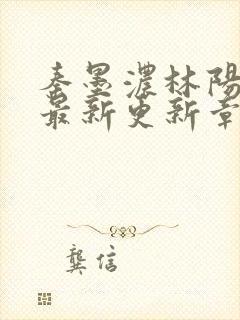 秦墨濃林陽
最新更新章
龔信